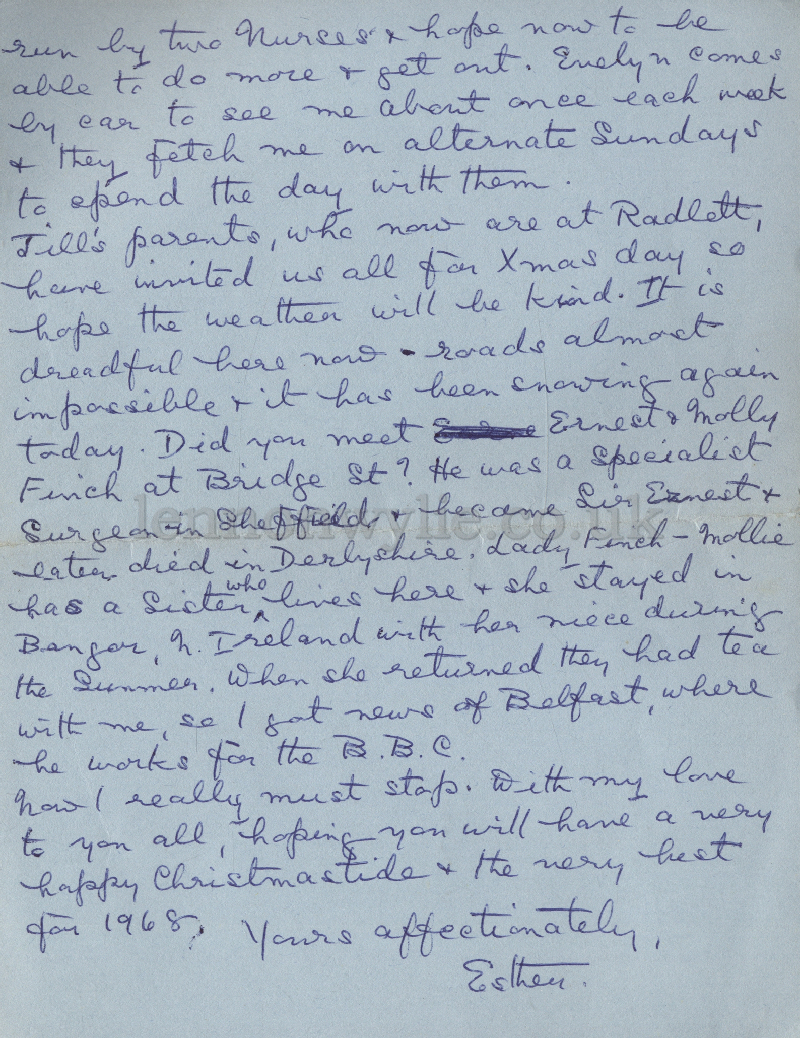 run by two Nurses & hope now to be
able to do more & get out. Evelyn comes
by car to see me about once each week
& they fetch me on alternate Sundays
to spend the day with them.
Jill's parents, who now are at Radlett,
have invited us all for Xmas day so
hope the weather will be kind. It is
dreadful here now - roads almost
impossible & it has been snowing again
today. Did you meet Ernest & Molly
Finch at Bridge St? He was a specialist
Surgeon in Sheffield & became Sir Ernest &
later died in Derbyshire. Lady Finch - Mollie
has a Sister who lives here & she stayed in
Bangor, N. Ireland with her niece during
the Summer. When she returned they had tea
with me, so I got news of Belfast, where
he works for the B.B.C.
Now I really must stop. With my love
to you all, hoping you will have a very
happy Christmastide & the very best
for 1968. Yours affectionately,
Esther.
lennonwylie.co.uk